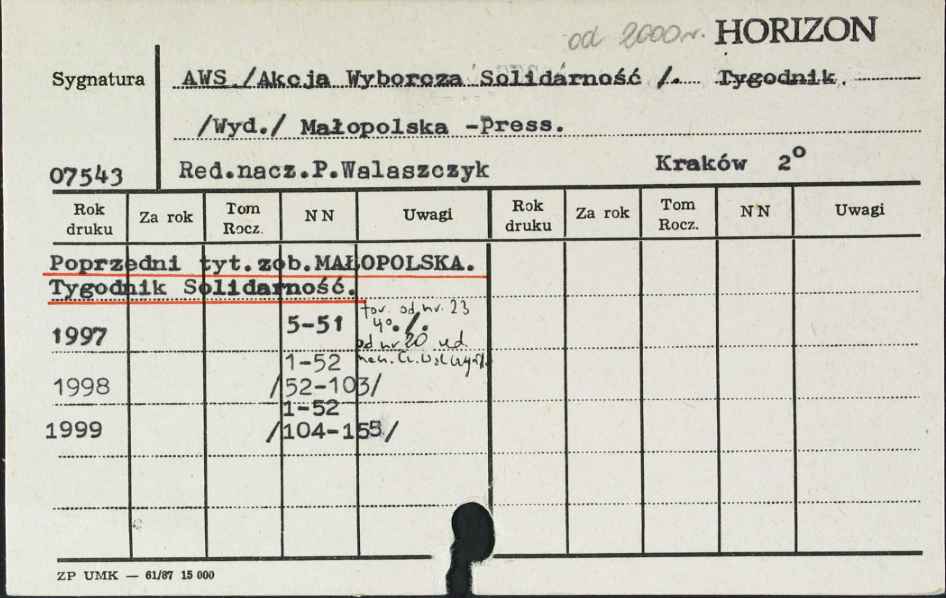 od 2000r. HORIZON
Sygnatura AWS./Akcja Wyborcza Solidarność /. Tygodnik.
/Wyd./ Małopolska -Press.
07543 Red.nacz.P.Walaszczyk Kraków 2º
Rok druku Za rok Tom Rocz. NN Uwagi Rok druku Za rok Tom Rocz. NN Uwagi
Poprzedni tyt.zob.MAŁOPOLSKA.
Tygodnik Solidarność.
for. od nr. 23
1997 5-51 4º./.
od nr 20 red.
1-52
1998 /52-103/
1-52
1999 /104-155/
ZP UMK — 61/87 15 000